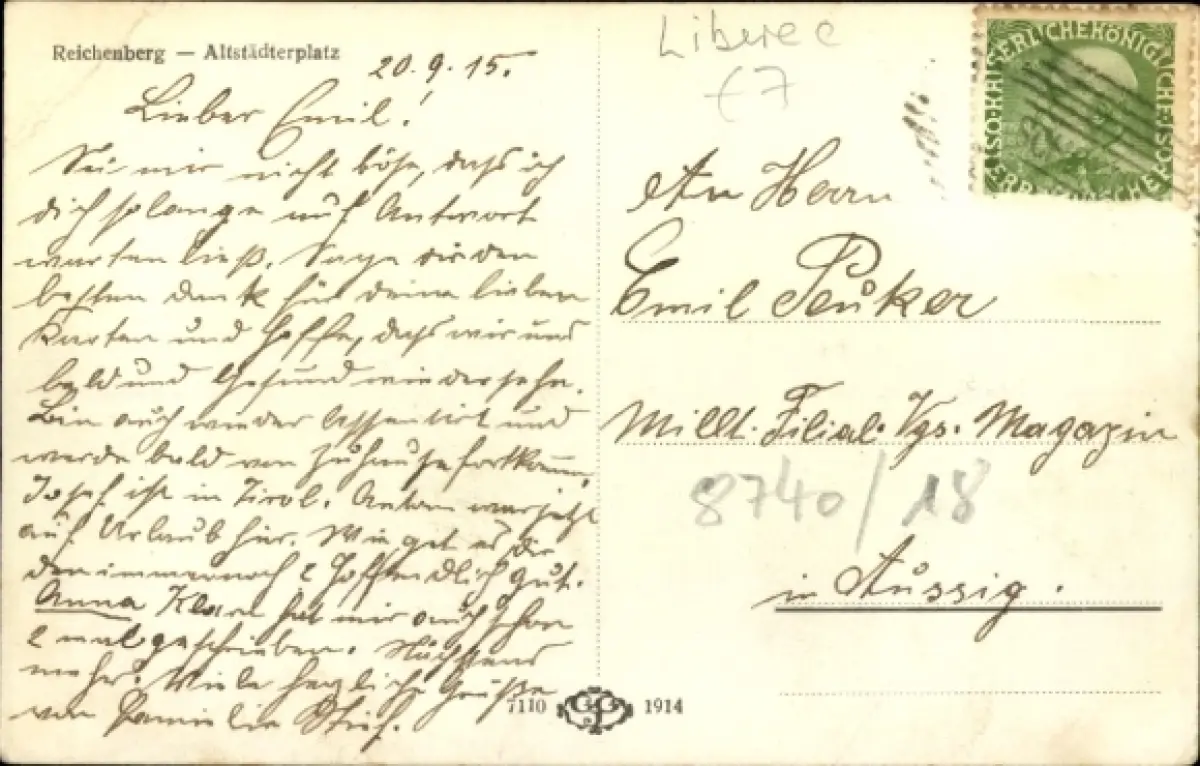 Reichenberg — Altstädterplatz
20.9.15.
Lieber Emil!
Sei mir nicht böse, dass ich
dich solange auf Antwort
warten ließ. Sage dir den
besten Dank für deine lieben
Karten und hoffe, dass wir uns
bald und Gesund wiedersehn.
Bin auch wieder assentirt und
werde bald von zuhause fortkomm.
Josef ist in Tirol. Anton war jetzt
auf Urlaub hier. Wie get es dir
den immernoch? Hoffendlich gut.
Anna Klara hat mir auch schon
2 mal geschrieben. Nächstens
mehr. Viele herzliche Grüße
von Familie
7110 1914
Liberec
€7
KAISERLICHEKÖNIGLICHE
An Herrn
Emil Peuker
Millt. Filial. Vgs. Magazin
8740/18
in Aussig.